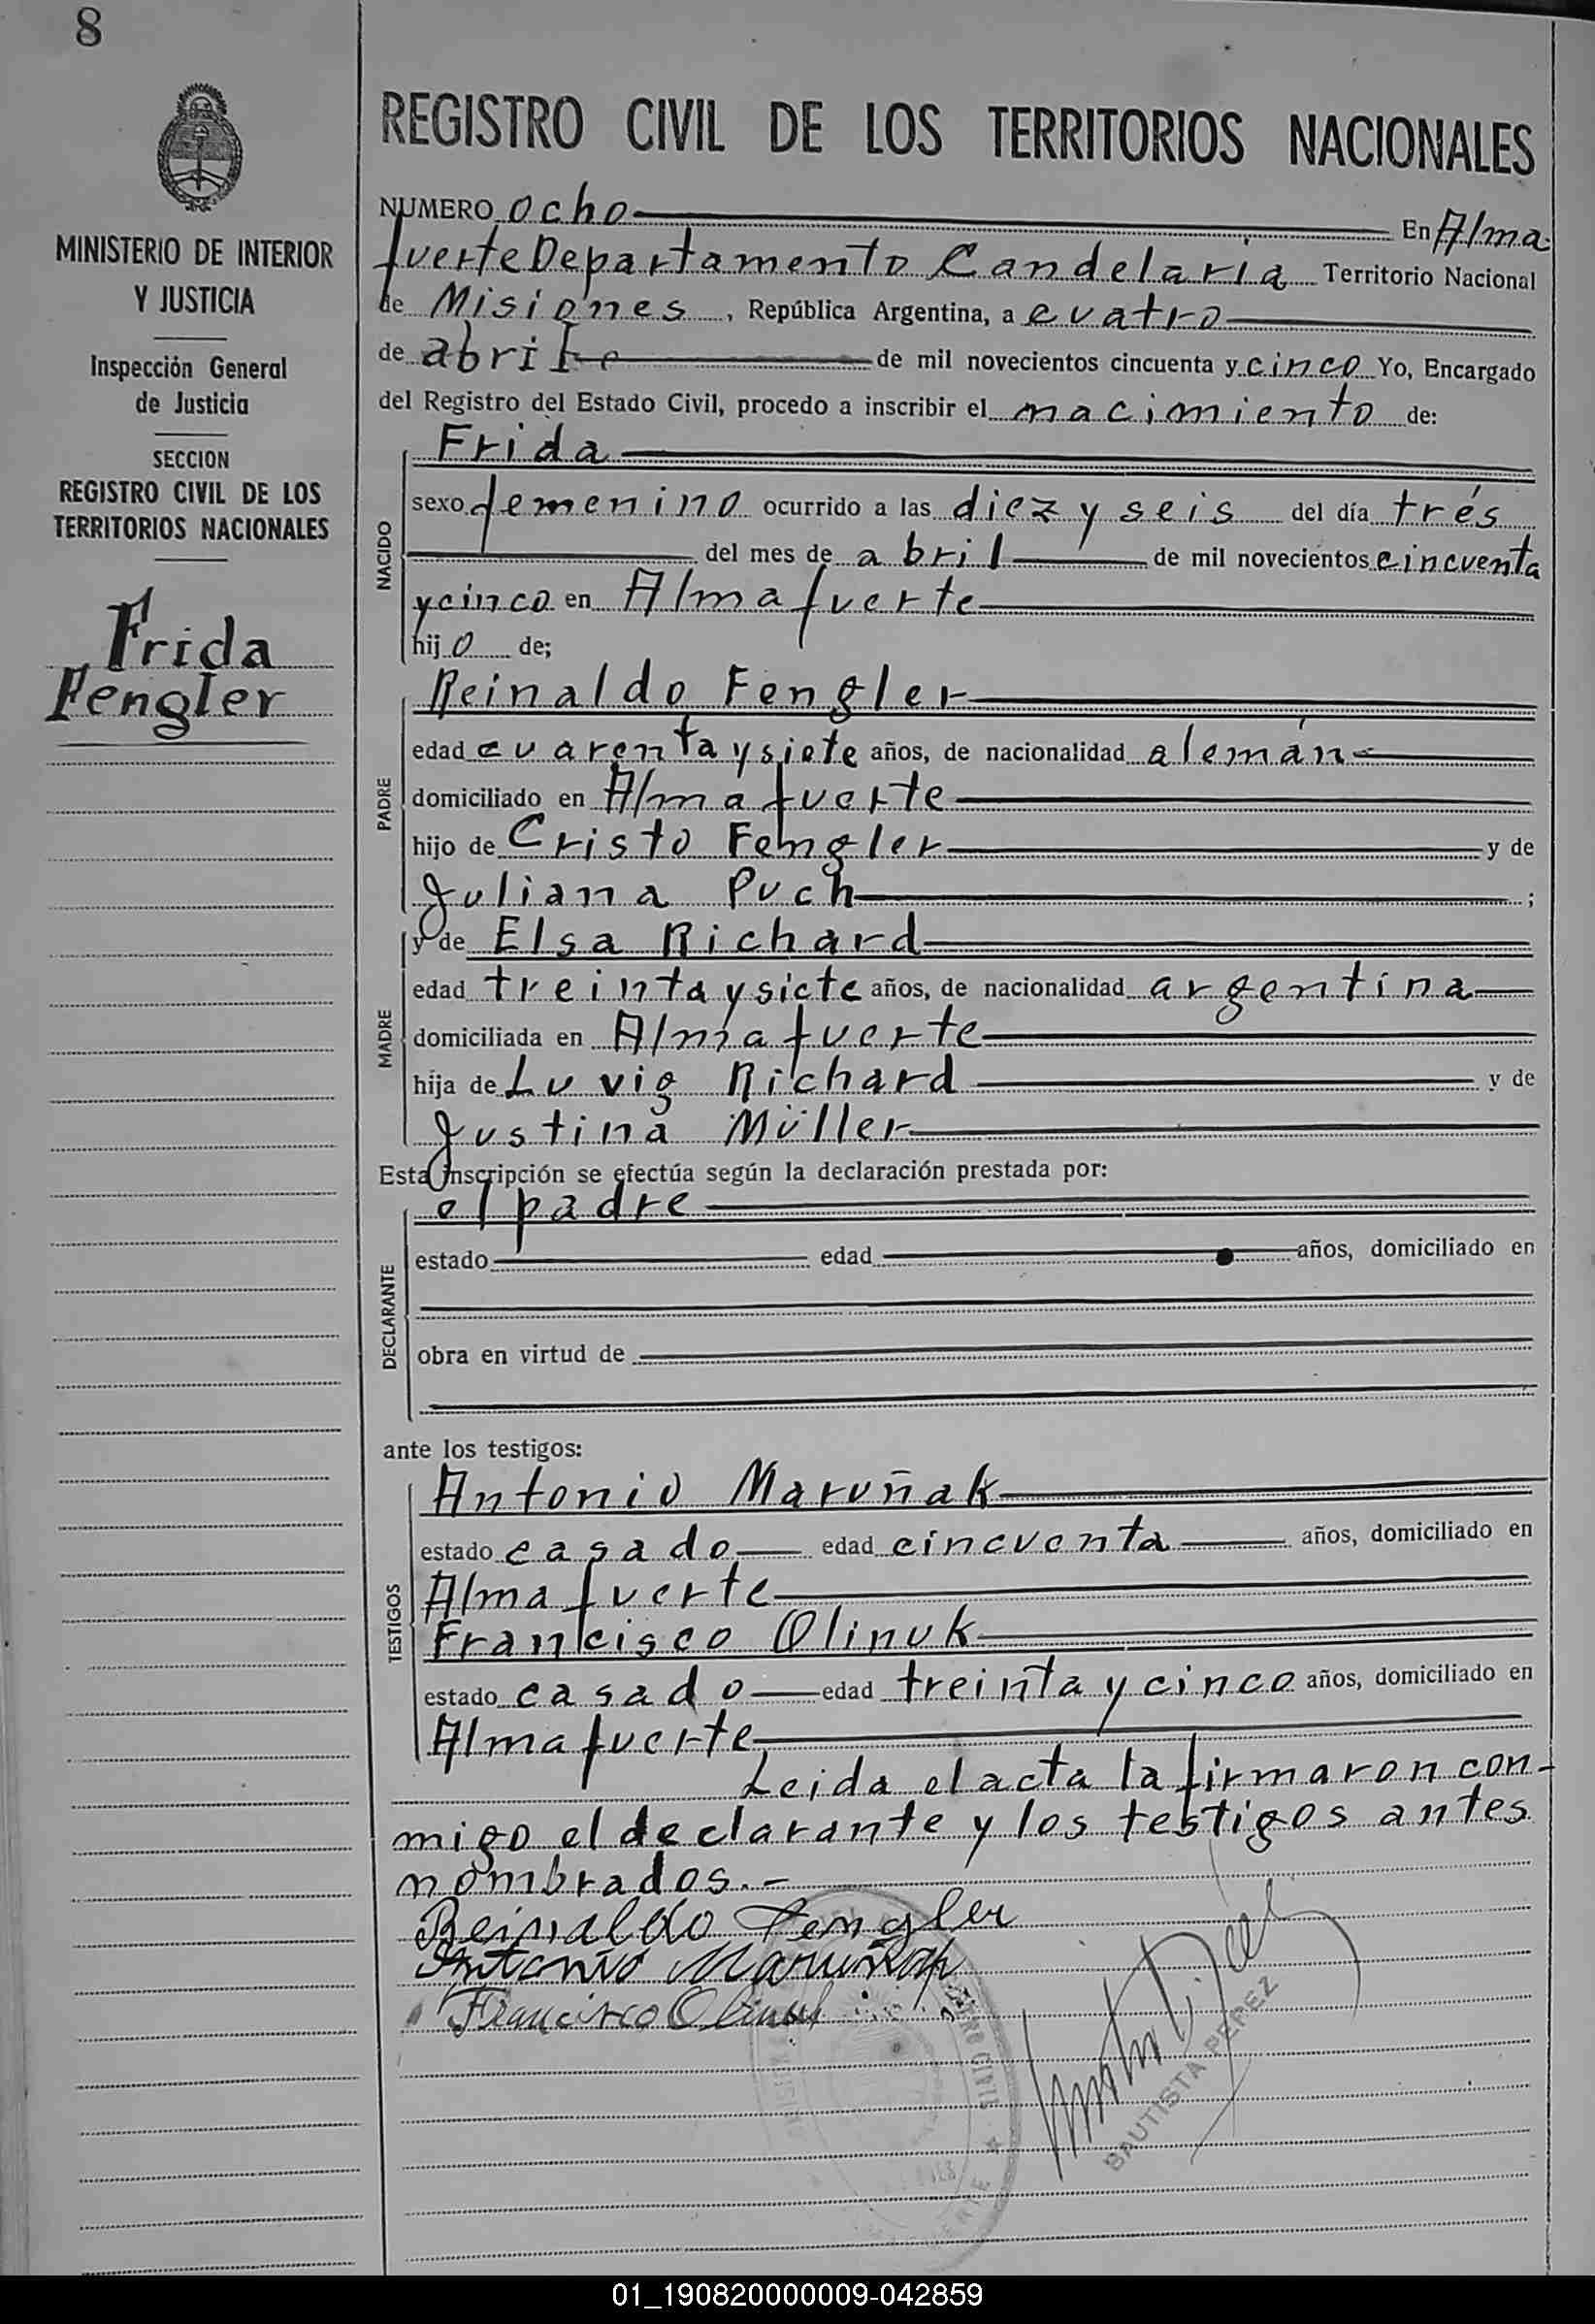 8
MINISTERIO DE INTERIOR
Y JUSTICIA
Inspección General
de Justicia
SECCION
REGISTRO CIVIL DE LOS
TERRITORIOS NACIONALES
Frida
Fengler
REGISTRO CIVIL DE LOS TERRITORIOS NACIONALES
NUMERO ocho En Alma
fuerte Departamento Candelaria Territorio Nacional
de Misiones, República Argentina, a cuatro
de abril de mil novecientos cincuenta y cinco Yo, Encargado
del Registro del Estado Civil, procedo a inscribir el nacimiento de:
NACIDO
Frida
sexo femenino ocurrido a las diez y seis del día trés
del mes de abril de mil novecientos cincuenta
y cinco en Almafuerte
hijo de;
PADRE
Reinaldo Fengler
edad cuarenta y siete años, de nacionalidad alemán
domiciliado en Almafuerte
hijo de Cristo Fengler y de
Juliana Puch ;
MADRE
y de Elsa Richard
edad treinta y siete años, de nacionalidad argentina
domiciliada en Almafuerte
hija de Luvig Richard y de
Justina Müller
Esta inscripción se efectúa según la declaración prestada por:
DECLARANTE
el padre
estado edad años, domiciliado en
obra en virtud de
ante los testigos:
TESTIGOS
Antonio Maruñak
estado casado edad cincuenta años, domiciliado en
Almafuerte
Francisco Olinuk
estado casado edad treinta y cinco años, domiciliado en
Almafuerte
Leida el acta la firmaron con-
migo el declarante y los testigos antes
nombrados.-
Reinaldo Fengler
Antonio Maruñak
Francisco Olinuk
BAUTISTA PEREZ
01_190820000009-042859